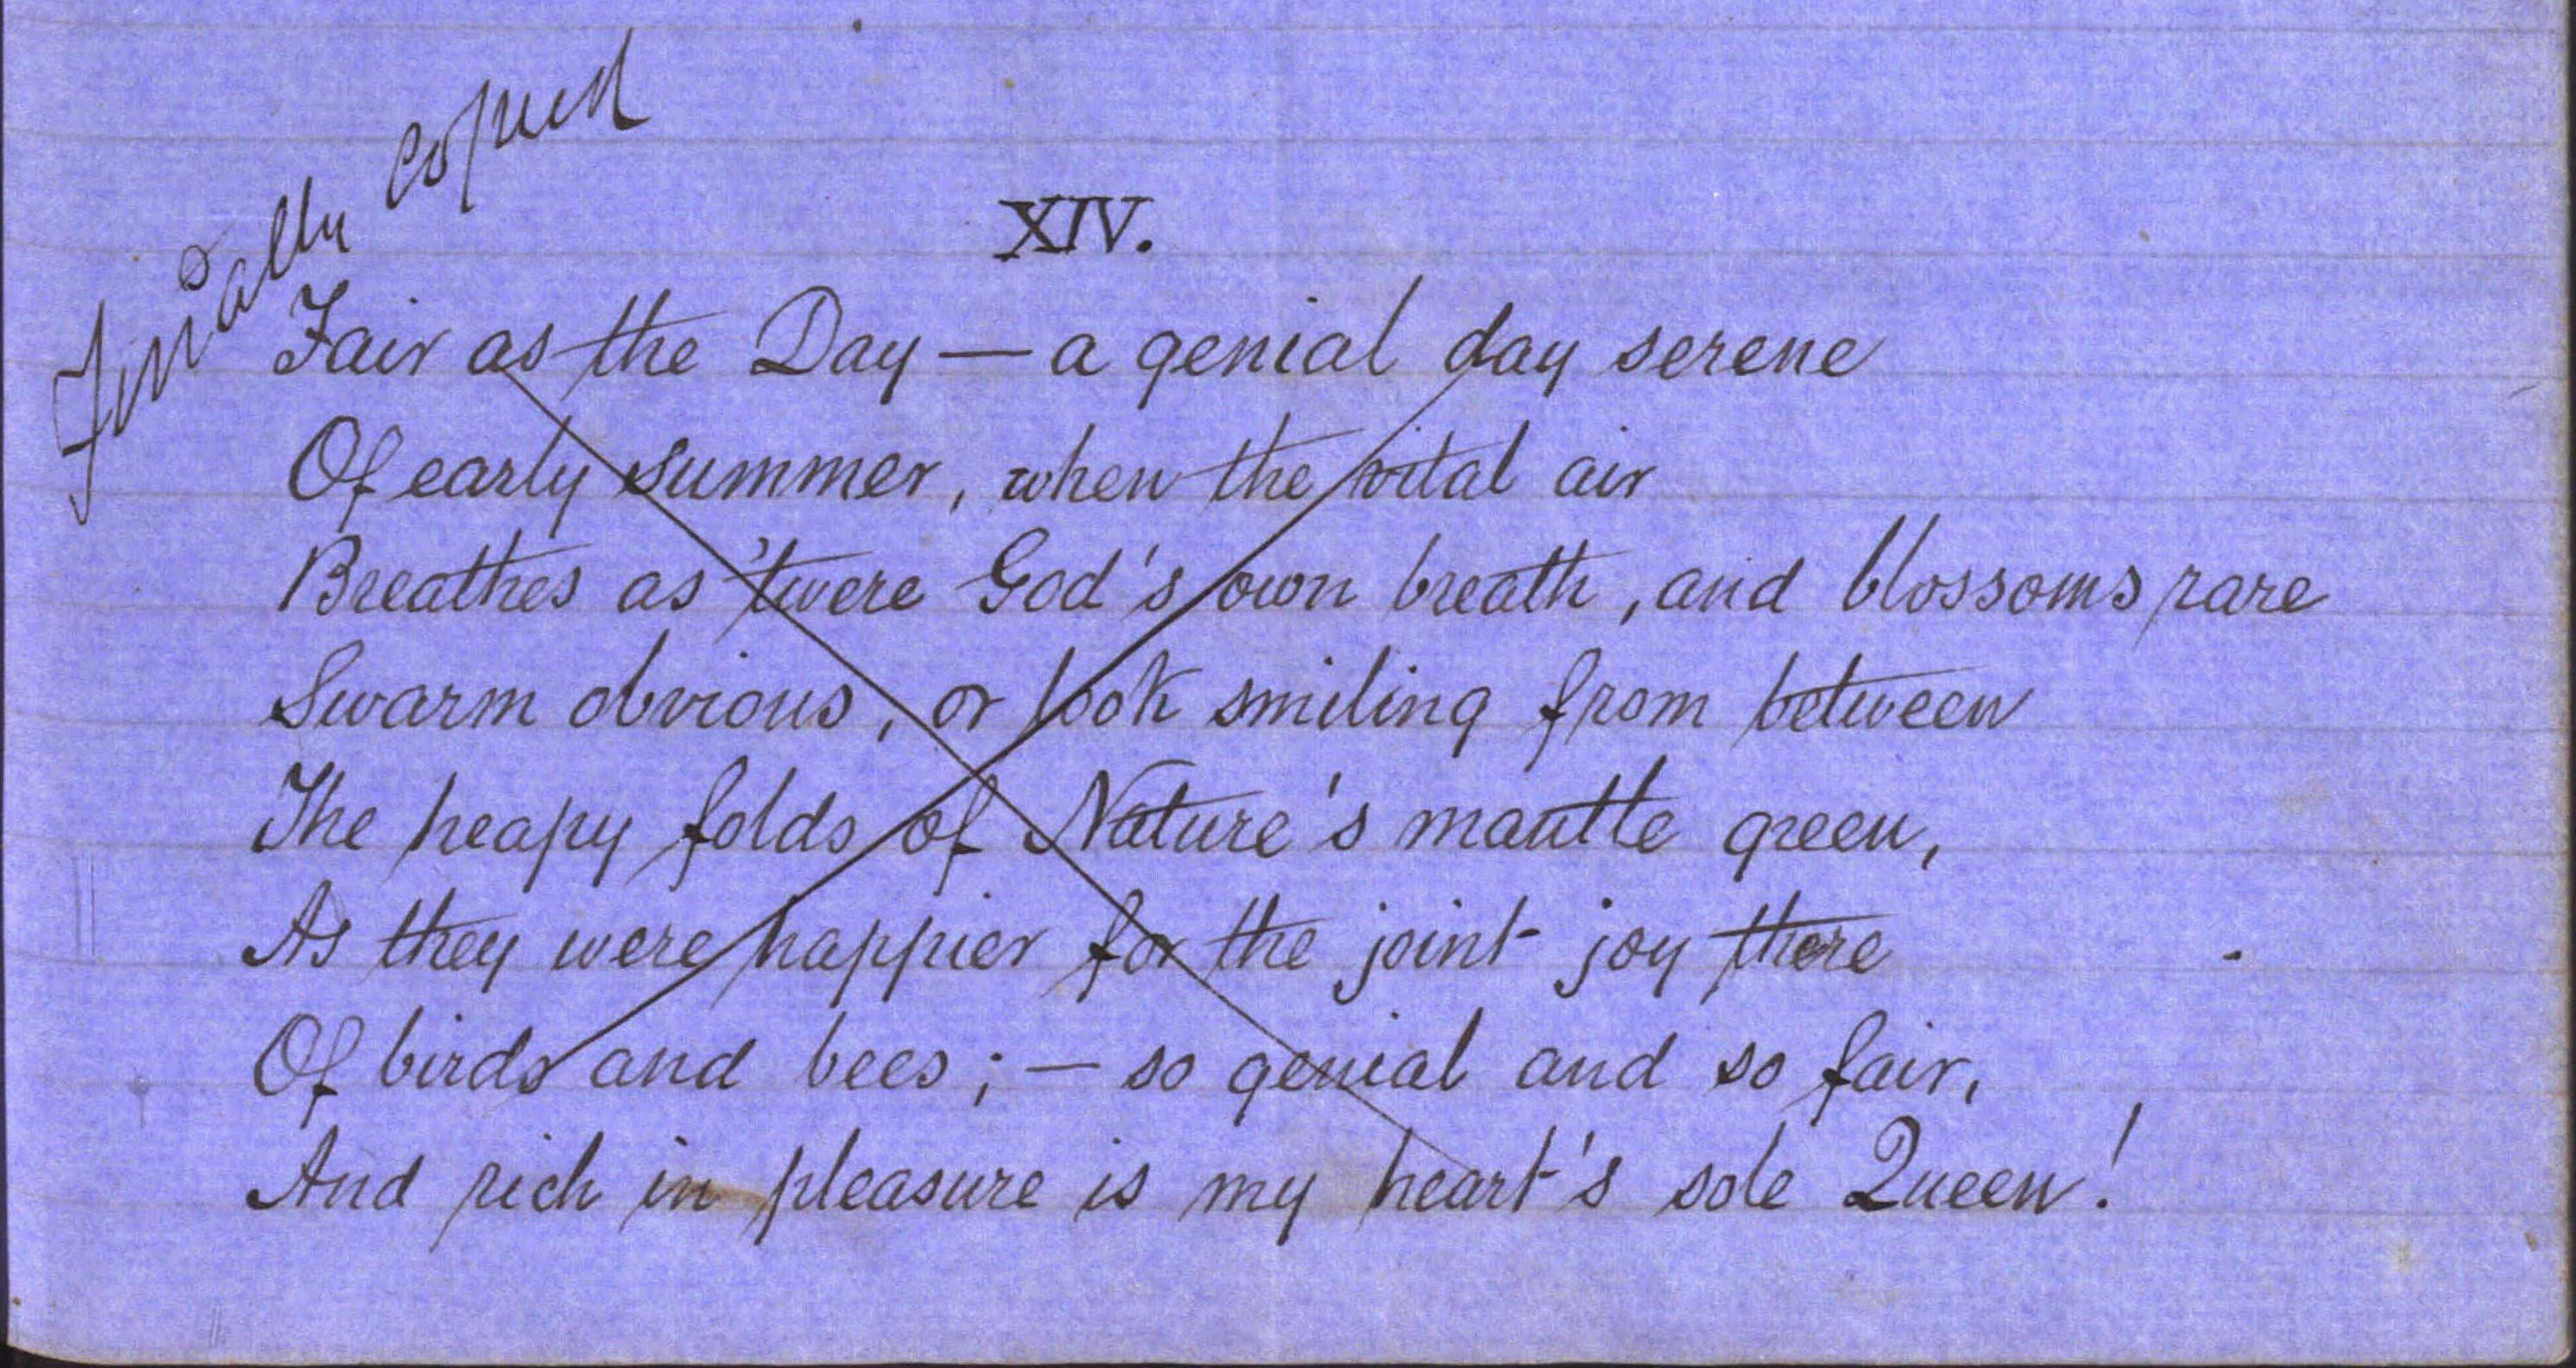 Finally copied
XIV.
Fair as the Day — a genial day serene
Of early summer, when the vital air
Breathes as 'twere God's own breath, and blossoms rare
Swarm obvious, or look smiling from between
The heapy folds of Nature's mantle green,
As they were happier for the joint joy there
Of birds and bees; — so genial and so fair,
And rich in pleasure is my heart's sole Queen!